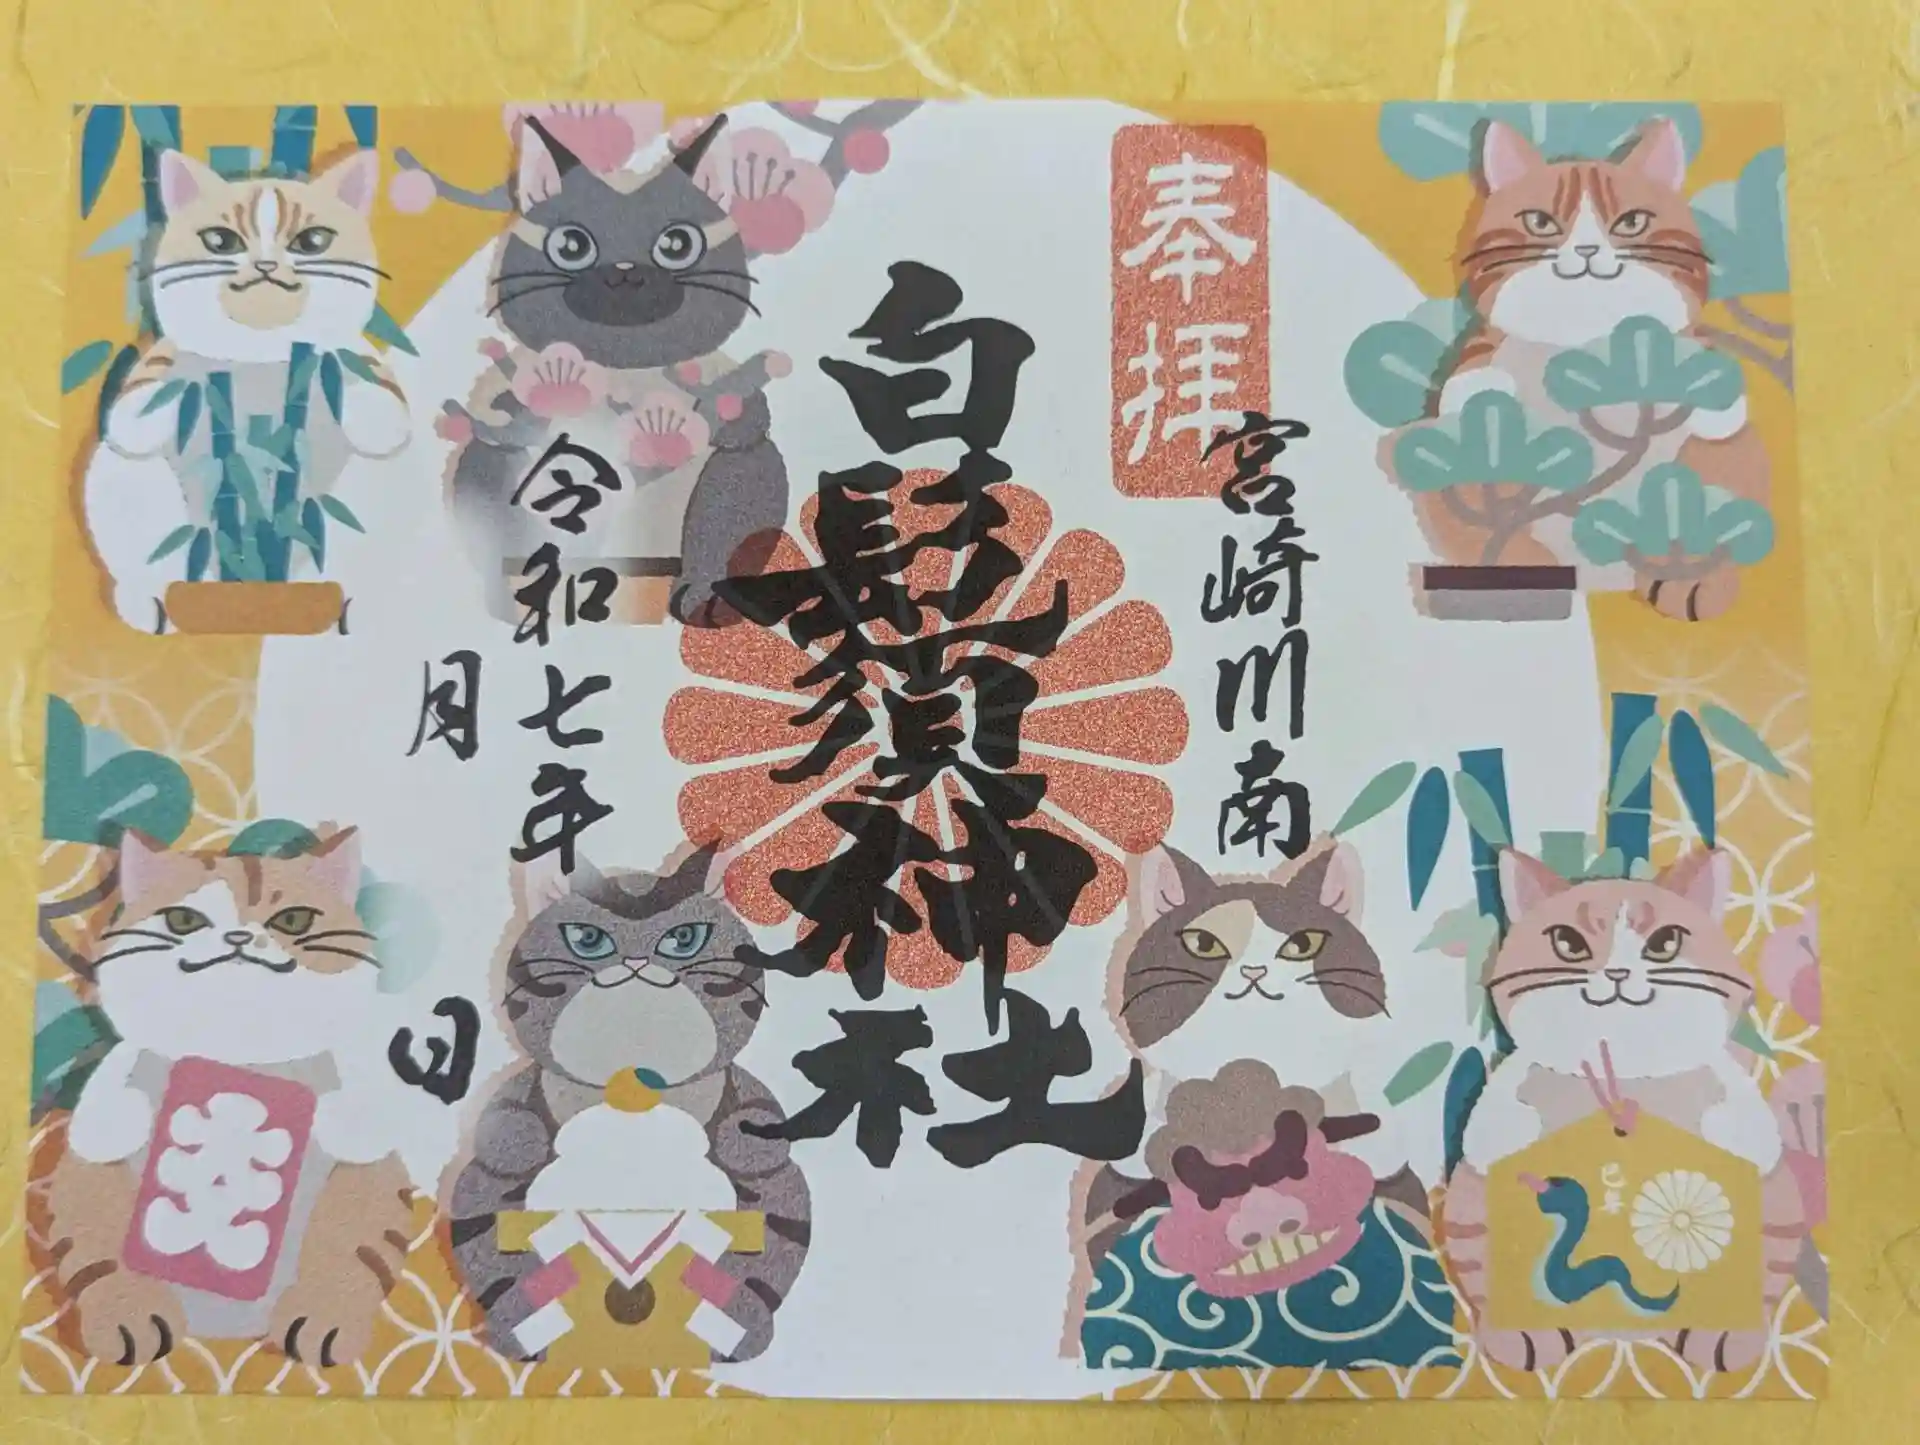 奉拝
宮崎川南
白鬚須神社
令和七年
月
日
巳年